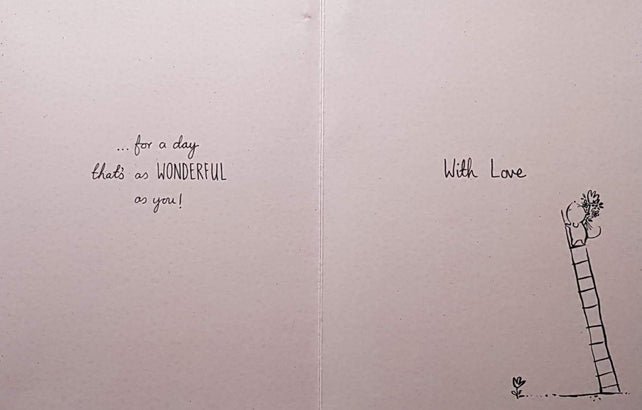 ...for a day
that's as WONDERFUL
as you!
With Love